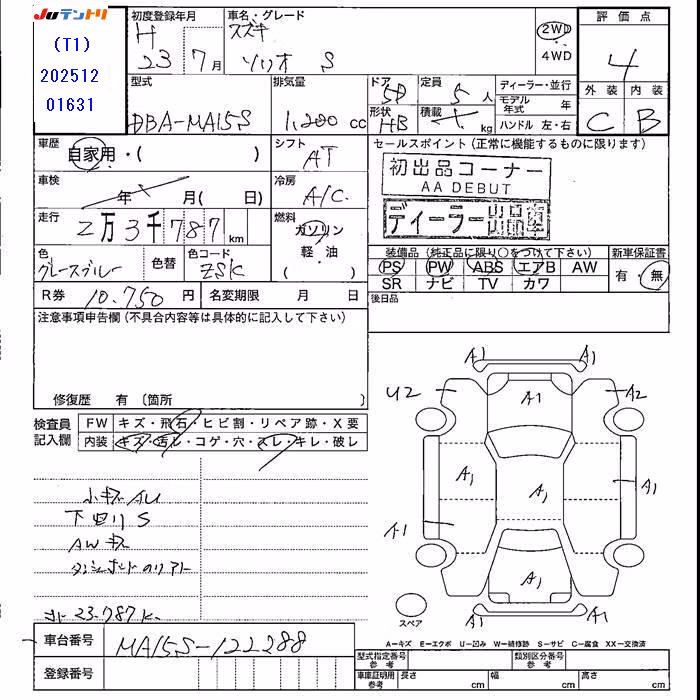 JUテントリ
(T1)
202512
01631
初度登録年月
H
23 7月
車名・グレード
スズキ
ソリオ S
2WD
4WD
評価点
4
外装 内装
C B
型式
DBA-MA15S
排気量
1,200 cc
ドア
5D
形状
HB
定員
5人
積載
kg
ディーラー・並行
モデル年式 年
ハンドル 左・右
車歴
自家用・( )
シフト
AT
セールスポイント(正常に機能するものに限ります)
初出品コーナー
AA DEBUT
ディーラー出品車
車検
年 月( 日)
冷房
A/C
走行
2万3千787km
燃料
ガソリン
軽・油
( )
色
グレースブルー
色替
色コード
ZSK
装備品(純正品に限り○をつけて下さい)
PS PW ABS エアB AW
SR ナビ TV カワ
新車保証書
有・無
R券 10,750円
名変期限 月 日
後日品
注意事項申告欄(不具合内容等は具体的に記入して下さい)
修復歴 有〔箇所 〕
検査員
記入欄
FW キズ・飛石・ヒビ割・リペア跡・X要
内装 キズ・汚レ・コゲ・穴・スレ・キレ・破レ
小キズ AU
下回りS
AWキズ
23.787K
A1 A1
U2 A1 A2
A1 A1 A1
A1
A1
A1 A1
スペア
車台番号
MA15S-122288
登録番号
A−キズ E−エクボ U−凹み W−補修跡 S−サビ C−腐食 XX−交換済
型式指定番号
参考
類別区分番号
参考
車庫証明用
参考
長さ cm 幅 cm 高さ cm